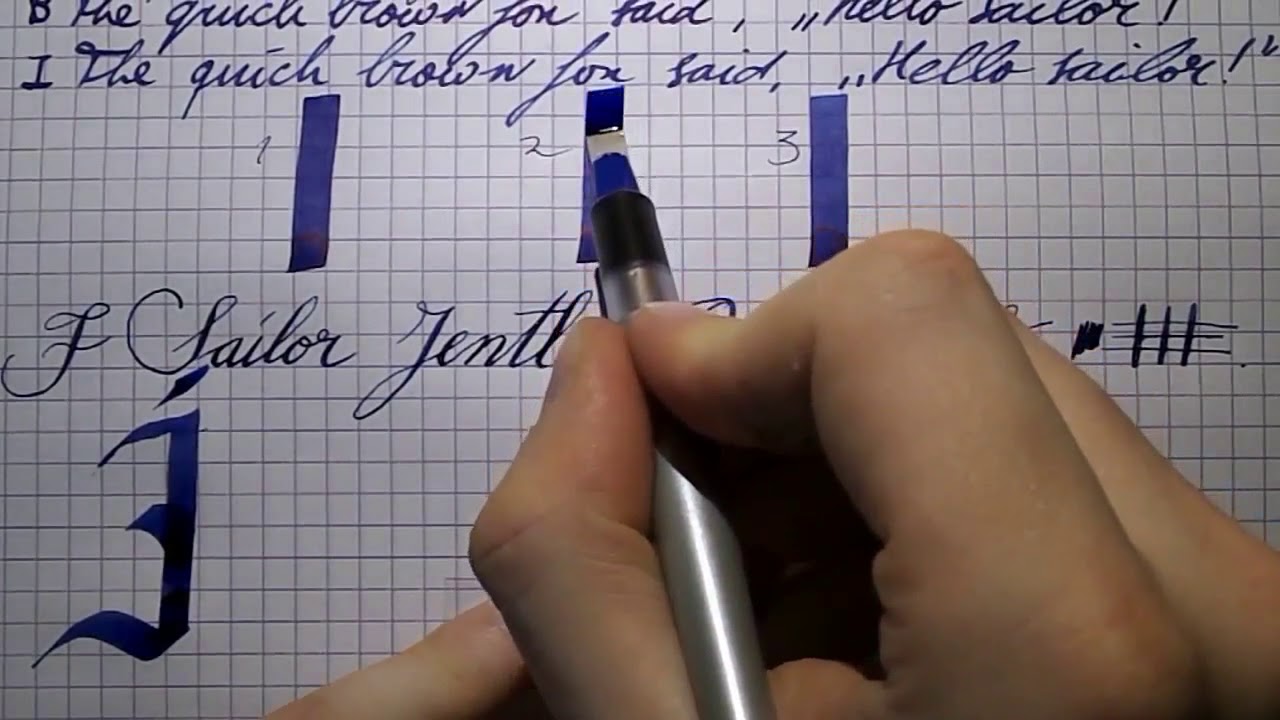 B The quick brown fox said, „Hello sailor!
I The quick brown fox said, „Hello sailor!“
1 2 3
F Sailor Jentl